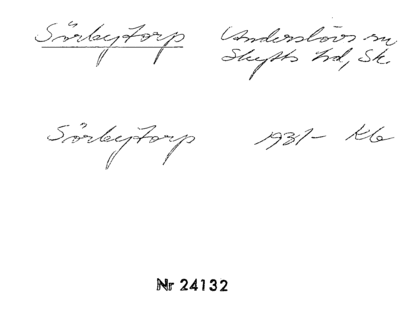 Sörbytorp Anderslövs sn
Skytts hd, Sk.
Sörbytorp 1931- Kb
Nr 24132